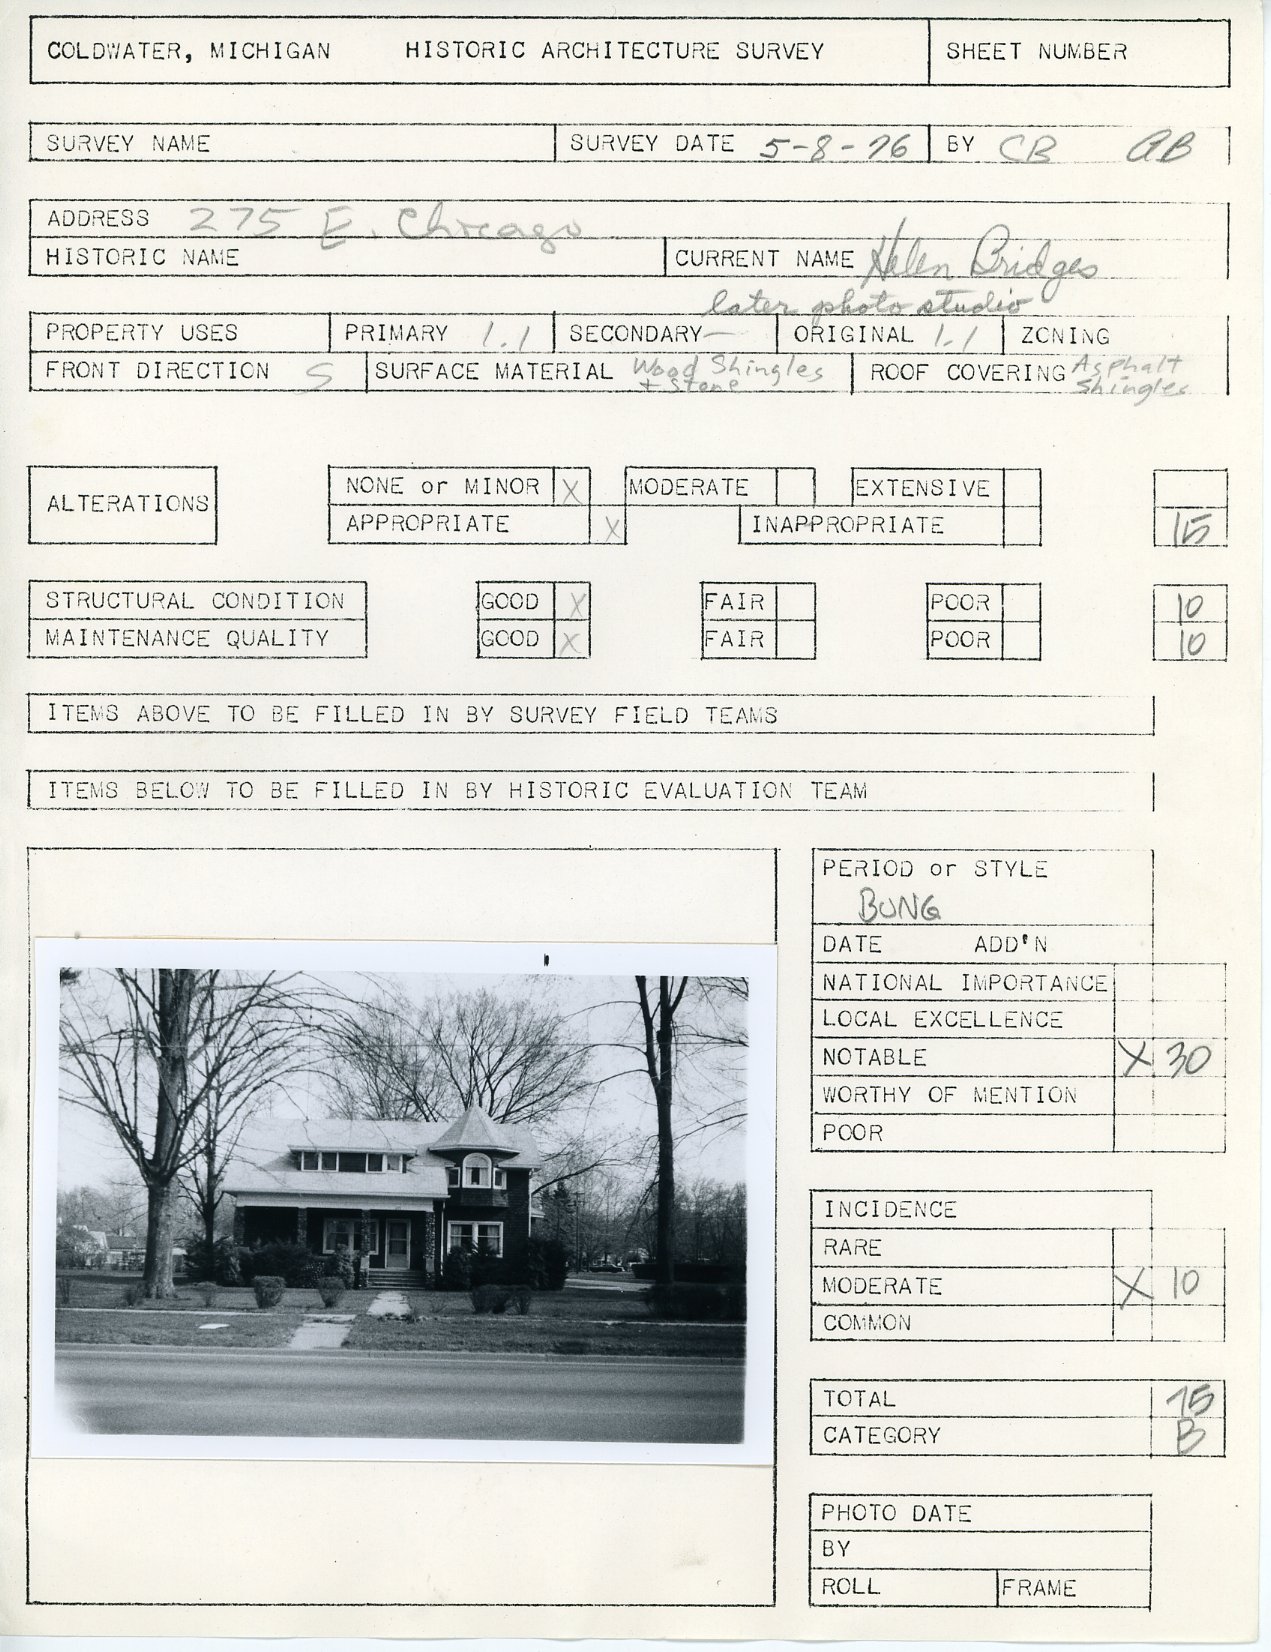 COLDWATER, MICHIGAN HISTORIC ARCHITECTURE SURVEY SHEET NUMBER
SURVEY NAME SURVEY DATE 5-8-76 BY CB AB
ADDRESS 275 E. Chicago
HISTORIC NAME CURRENT NAME Helen Bridges
later photo studio
PROPERTY USES PRIMARY 1.1 SECONDARY — ORIGINAL 1.1 ZONING
FRONT DIRECTION S SURFACE MATERIAL Wood Shingles + Stone ROOF COVERING Asphalt Shingles
ALTERATIONS NONE or MINOR X MODERATE EXTENSIVE
APPROPRIATE X INAPPROPRIATE 15
STRUCTURAL CONDITION GOOD X FAIR POOR 10
MAINTENANCE QUALITY GOOD X FAIR POOR 10
ITEMS ABOVE TO BE FILLED IN BY SURVEY FIELD TEAMS
ITEMS BELOW TO BE FILLED IN BY HISTORIC EVALUATION TEAM
PERIOD or STYLE
BUNG
DATE ADD'N
NATIONAL IMPORTANCE
LOCAL EXCELLENCE
NOTABLE X 30
WORTHY OF MENTION
POOR
INCIDENCE
RARE
MODERATE X 10
COMMON
TOTAL 75
CATEGORY B
PHOTO DATE
BY
ROLL FRAME